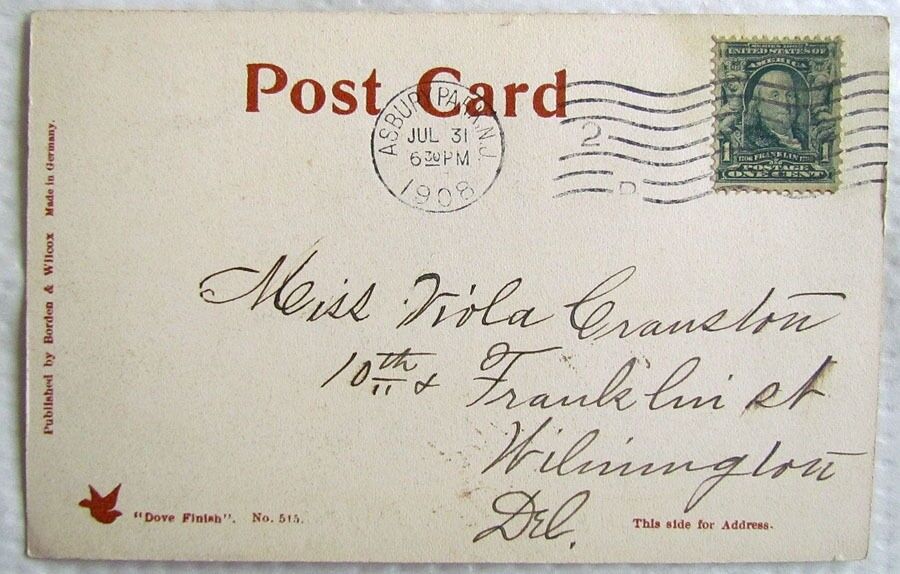 Post Card
ASBURY PARK, N.J.
JUL 31
6 30 PM
1908
2
D
SERIES 1902
UNITED STATES OF
AMERICA
1 1706 FRANKLIN 1790 1
POSTAGE
ONE CENT
Published by Borden & Wilcox Made in Germany.
Miss Viola Cranston
10th & Franklin st
Wilmington
Del.
"Dove Finish". No. 515.
This side for Address.